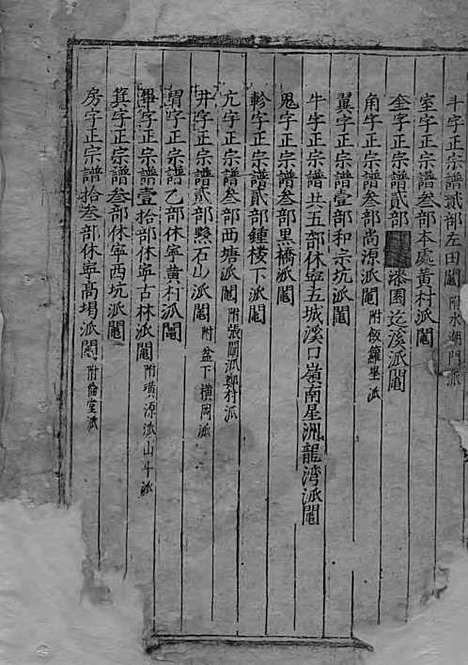 斗字正宗譜貳部左田鬮 附水湖門派
室字正宗譜叁部本處黃村派鬮
奎字正宗譜貳部 派鬮
角字正宗譜叁部尚源派鬮 附飯籮坐派
翼字正宗譜壹部和宗坑派鬮
牛字正宗譜共五部休寧五城溪口嶺南星洲龍灣派鬮
鬼字正宗譜叁部黑橋派鬮
軫字正宗譜貳部鍾棱下派鬮
亢字正宗譜叁部西塘派鬮 附張閣派鄭村派
井字正宗譜貳部黟石山派鬮 附盆下橫岡派
胃字正宗譜乙部休寧黃村派鬮
畢字正宗譜壹拾部休寧古林派鬮 附璜源派山斗派
箕字正宗譜叁部休寧西坑派鬮
房字正宗譜拾叁部休寧高堨派鬮 附倫堂派